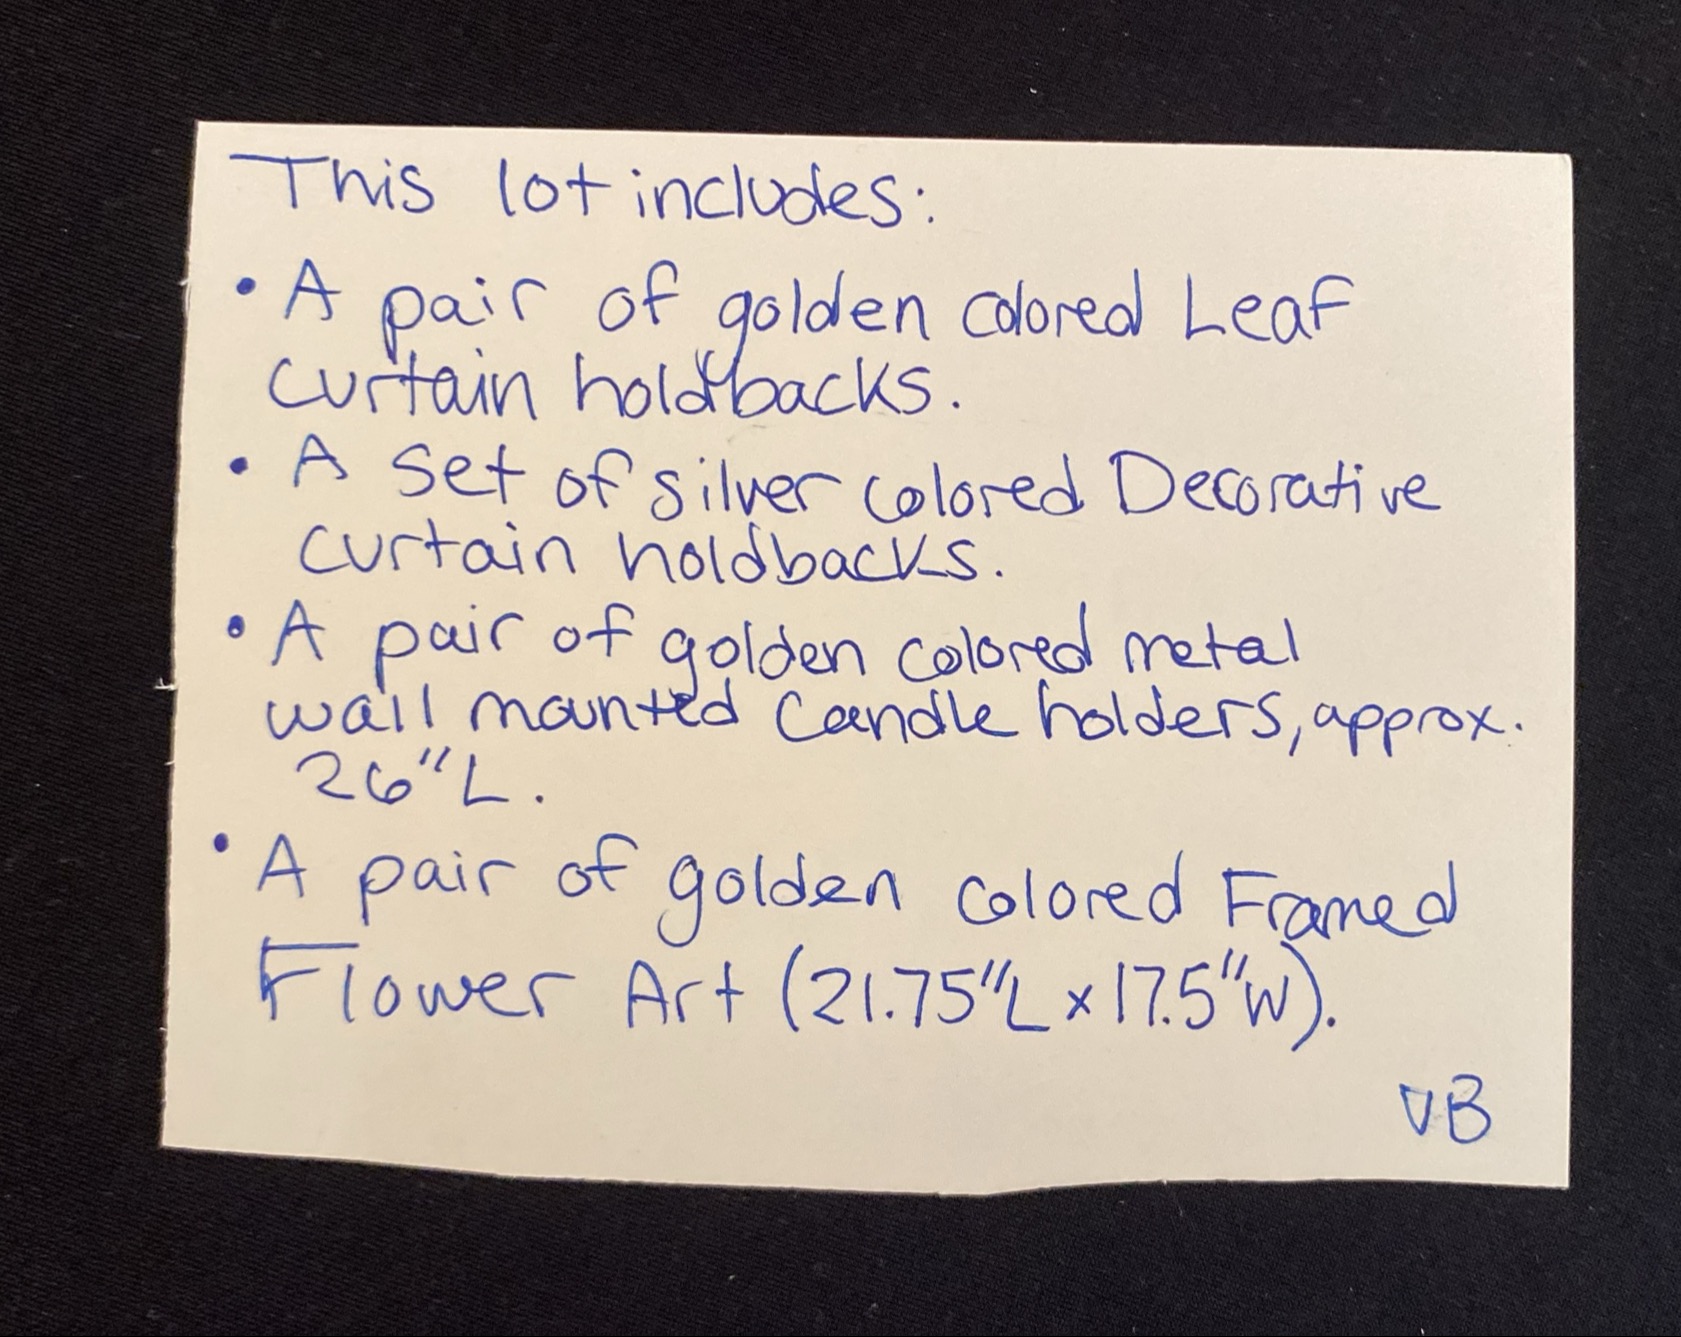 This lot includes:
• A pair of golden colored Leaf
curtain holdbacks.
• A set of silver colored Decorative
curtain holdbacks.
• A pair of golden colored metal
wall mounted Candle holders, approx.
26"L.
• A pair of golden colored Framed
Flower Art (21.75"L x 17.5"W).
VB